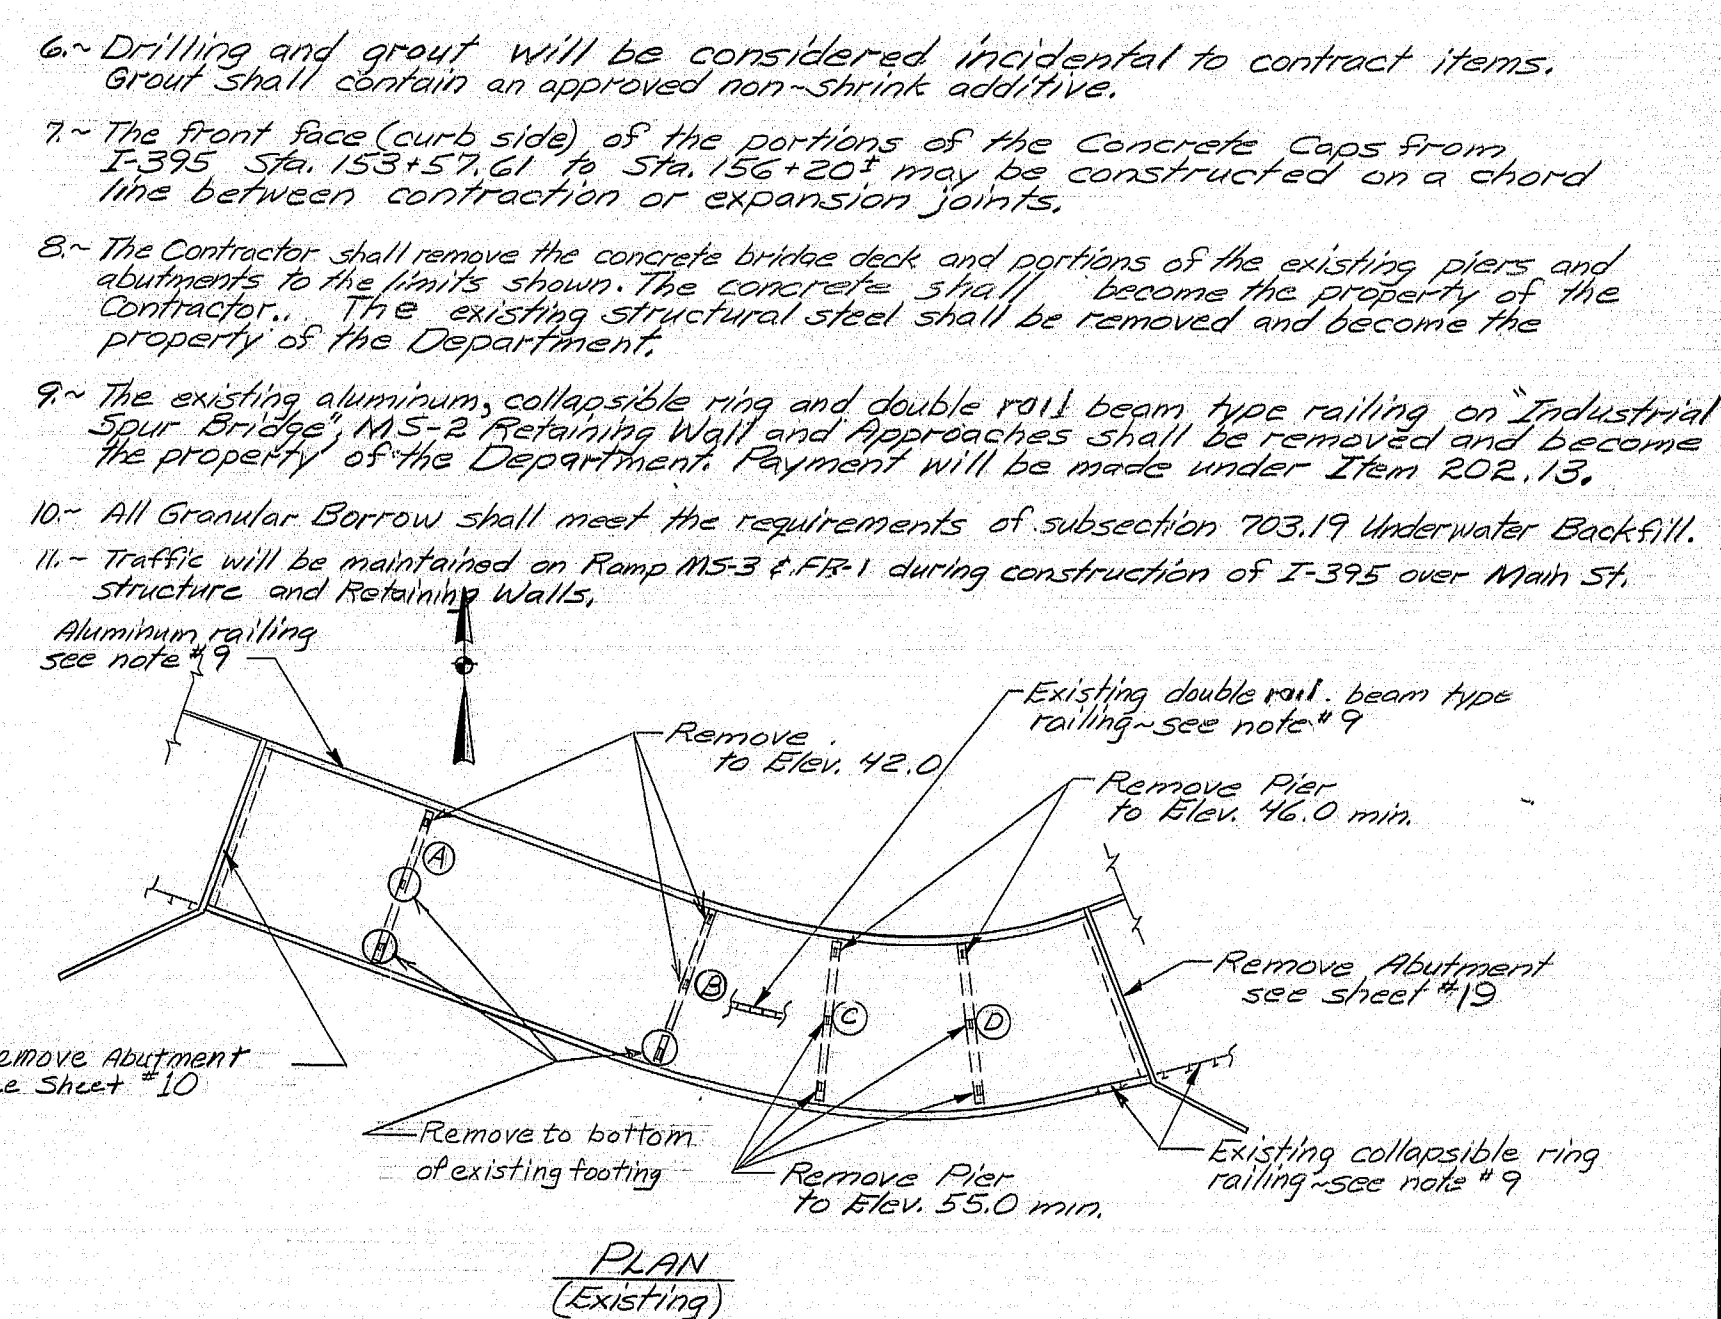 6.~ Drilling and grout will be considered incidental to contract items.
Grout shall contain an approved non~shrink additive.
7.~ The front face (curb side) of the portions of the Concrete Caps from
I-395 Sta. 153+57.61 to Sta. 156+20± may be constructed on a chord
line between contraction or expansion joints.
8.~ The Contractor shall remove the concrete bridge deck and portions of the existing piers and
abutments to the limits shown. The concrete shall become the property of the
Contractor.. The existing structural steel shall be removed and become the
property of the Department.
9.~ The existing aluminum, collapsible ring and double rail beam type railing on "Industrial
Spur Bridge", MS-2 Retaining Wall and Approaches shall be removed and become
the property of the Department. Payment will be made under Item 202.13.
10.~ All Granular Borrow shall meet the requirements of subsection 703.19 Underwater Backfill.
11.~ Traffic will be maintained on Ramp MS-3 & FR-1 during construction of I-395 over Main St.
structure and Retaining Walls.
Aluminum railing
see note #9
Existing double rail. beam type
railing~see note #9
Remove
to Elev. 42.0
Remove Pier
to Elev. 46.0 min.
A
B
C
D
Remove Abutment
see sheet #19
emove Abutment
e Sheet #10
Remove to bottom
of existing footing
Remove Pier
to Elev. 55.0 min.
Existing collapsible ring
railing~see note #9
PLAN
(Existing)